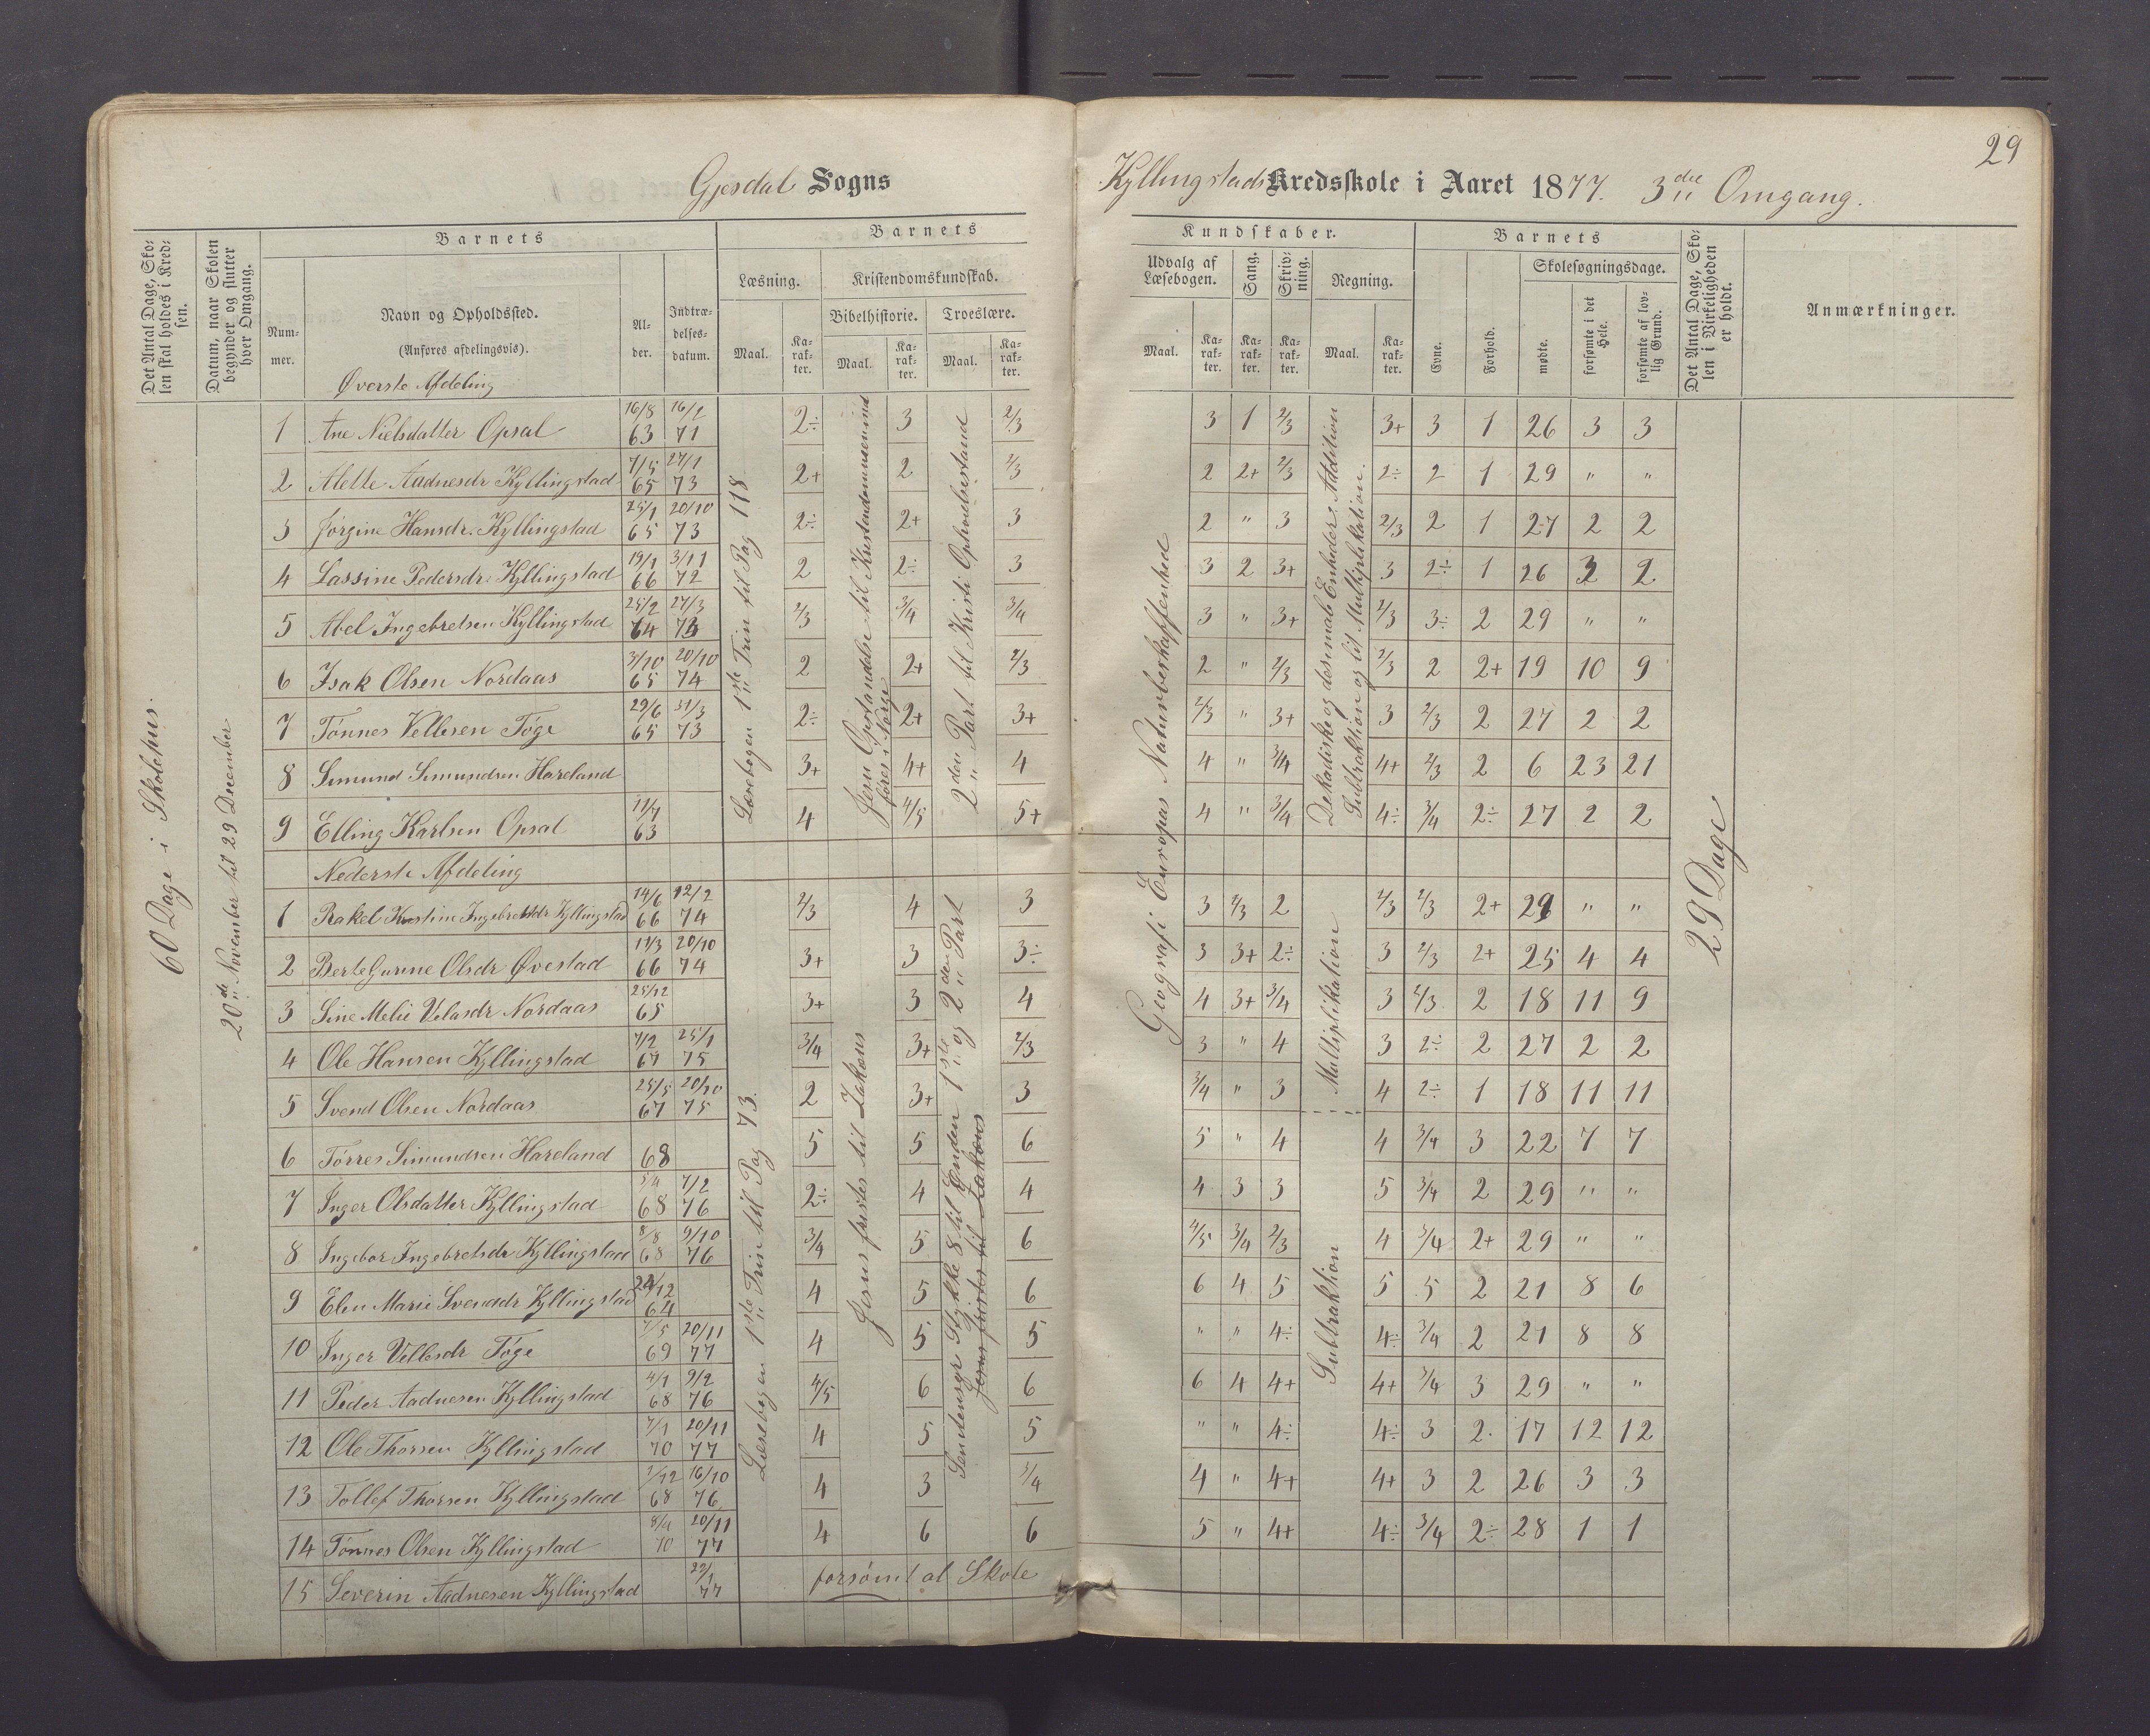 29
Gjesdal Sogns Kyllingstads Kredsskole i Aaret 1877. 3die Omgang.
Det Antal Dage, Sko-
len skal holdes i Kred-
sen.
Datum, naar Skolen
begynder og slutter
hver Omgang.
Barnets
Num-
mer.
Navn og Opholdssted.
(Anføres afdelingsvis).
Al-
der.
Indtræ-
delses-
datum.
Barnets
Læsning.
Maal.
Ka-
rak-
ter.
Kristendomskundskab.
Bibelhistorie.
Maal.
Ka-
rak-
ter.
Troeslære.
Maal.
Ka-
rak-
ter.
Kundskaber.
Udvalg af
Læsebogen.
Maal.
Ka-
rak-
ter.
Sang.
Ka-
rak-
ter.
Skriv-
ning.
Ka-
rak-
ter.
Regning.
Maal.
Ka-
rak-
ter.
Barnets
Evne.
Forhold.
Skolesøgningsdage.
mødte.
forsømte i det
Hele.
forsømte af lov-
lig Grund.
Det Antal Dage, Sko-
len i Virkeligheden
er holdt.
Anmærkninger.
60 Dage i Skolehus.
20de November til 29 December
Øverste Afdeling
Læsebogen 1ste Trin til Pag 118
føres i Norge
2den Part til Kristi Ophøielsestand
Geografi Europas Naturbeskaffenhed
Dekadiske og desimale Enheder. Addition
Subtraktion og lit Multiplikation.
29 Dage
1 Ane Nielsdatter Opsal 16/8 63 16/2 71 2÷ 3 2/3 3 1 2/3 3+ 3 1 26 3 3
2 Alette Aadnesdr Kyllingstad 7/5 65 27/1 73 2+ 2 2/3 2 2+ 2/3 2÷ 2 1 29 " "
3 Jørgine Hansdr. Kyllingstad 25/1 65 20/10 73 2÷ 2+ 3 2 " 3 2/3 2 1 27 2 2
4 Lassine Pedersdr. Kyllingstad 19/1 66 3/11 72 2 2÷ 3 3 2 3+ 3 2÷ 1 26 2
5 Abel Ingebretsen Kyllingstad 25/2 64 27/3 2/3 3/4 3/4 3 " 3+ 2/3 3÷ 2 29 " "
6 Isak Olsen Nordaas 3/10 65 20/10 74 2 2+ 2/3 2 " 2/3 2/3 2 2+ 19 10 9
7 Tønnes Vellesen Tøge 29/6 65 31/3 73 2÷ 2+ 3+ 2/3 " 3+ 3 2/3 2 27 2 2
8 Simund Simundsen Hareland 3+ 4+ 4 4 " 3/4 4+ 2/3 2 6 23 21
9 Elling Karlsen Opsal 11/7 63 4 4/5 5+ 4 " 3/4 4÷ 3/4 2÷ 27 2 2
Nederste Afdeling
Læsebogen 1ste Trin til Pag 73.
Jesus fristes til Zakæus
Stykke 8 til Enden 1ste og 2den Part
Jesus fristes til Zakæus
Multiplikation
Subtraktion
1 Rakel Kristine Ingebretsdr Kyllingstad 14/6 66 12/2 74 2/3 4 3 3 2/3 2 2/3 2/3 2+ 29 " "
2 Berte Gurine Olsdr Øvestad 11/3 66 20/10 74 3+ 3 3÷ 3 3+ 2÷ 3 2/3 2+ 25 4 4
3 Sine Melie Velasdr Nordaas 25/12 65 3+ 3 4 4 3+ 3/4 3 2/3 2 18 11 9
4 Ole Hansen Kyllingstad 7/2 67 25/1 75 3/4 3+ 2/3 3 " 4 3 2÷ 2 27 2 2
5 Svend Olsen Nordaas 25/5 67 20/10 75 2 3+ 3 3/4 " 3 4 2÷ 1 18 11 11
6 Tørres Simundsen Hareland 68 5 5 6 5 " 4 4 3/4 3 22 7 7
7 Inger Olsdatter Kyllingstad 5/4 68 7/2 76 2÷ 4 4 4 3 3 5 3/4 2 29 " "
8 Ingebor Ingebretsdr Kyllingstad 8/8 68 9/10 76 3/4 5 6 4/5 3/4 2/3 4 3/4 2+ 29 " "
9 Elen Marie Svendsdr Kyllingstad 64 4 5 6 6 4 5 5 5 2 21 8 6
10 Inger Vellesdr Tøge 7/5 69 20/11 77 4 5 5 " " 4÷ 4÷ 3/4 2 21 8 8
11 Peder Aadnesen Kyllingstad 4/1 68 9/2 76 4/5 6 6 6 4 4+ 4+ 3/4 3 29 " "
12 Ole Thorsen Kyllingstad 7/1 70 20/11 77 4 5 5 " " 4÷ 4÷ 3 2. 17 12 12
13 Tollef Thorsen Kyllingstad 3/12 68 16/10 76 4 3 3/4 4 " 4+ 4+ 3 2 26 3 3
14 Tønnes Olsen Kyllingstad 8/4 70 20/11 77 4 6 6 5 " 4+ 4÷ 3/4 2÷ 28 1 1
15 Severin Aadnesen Kyllingstad 22/1 77 forsømt al Skole